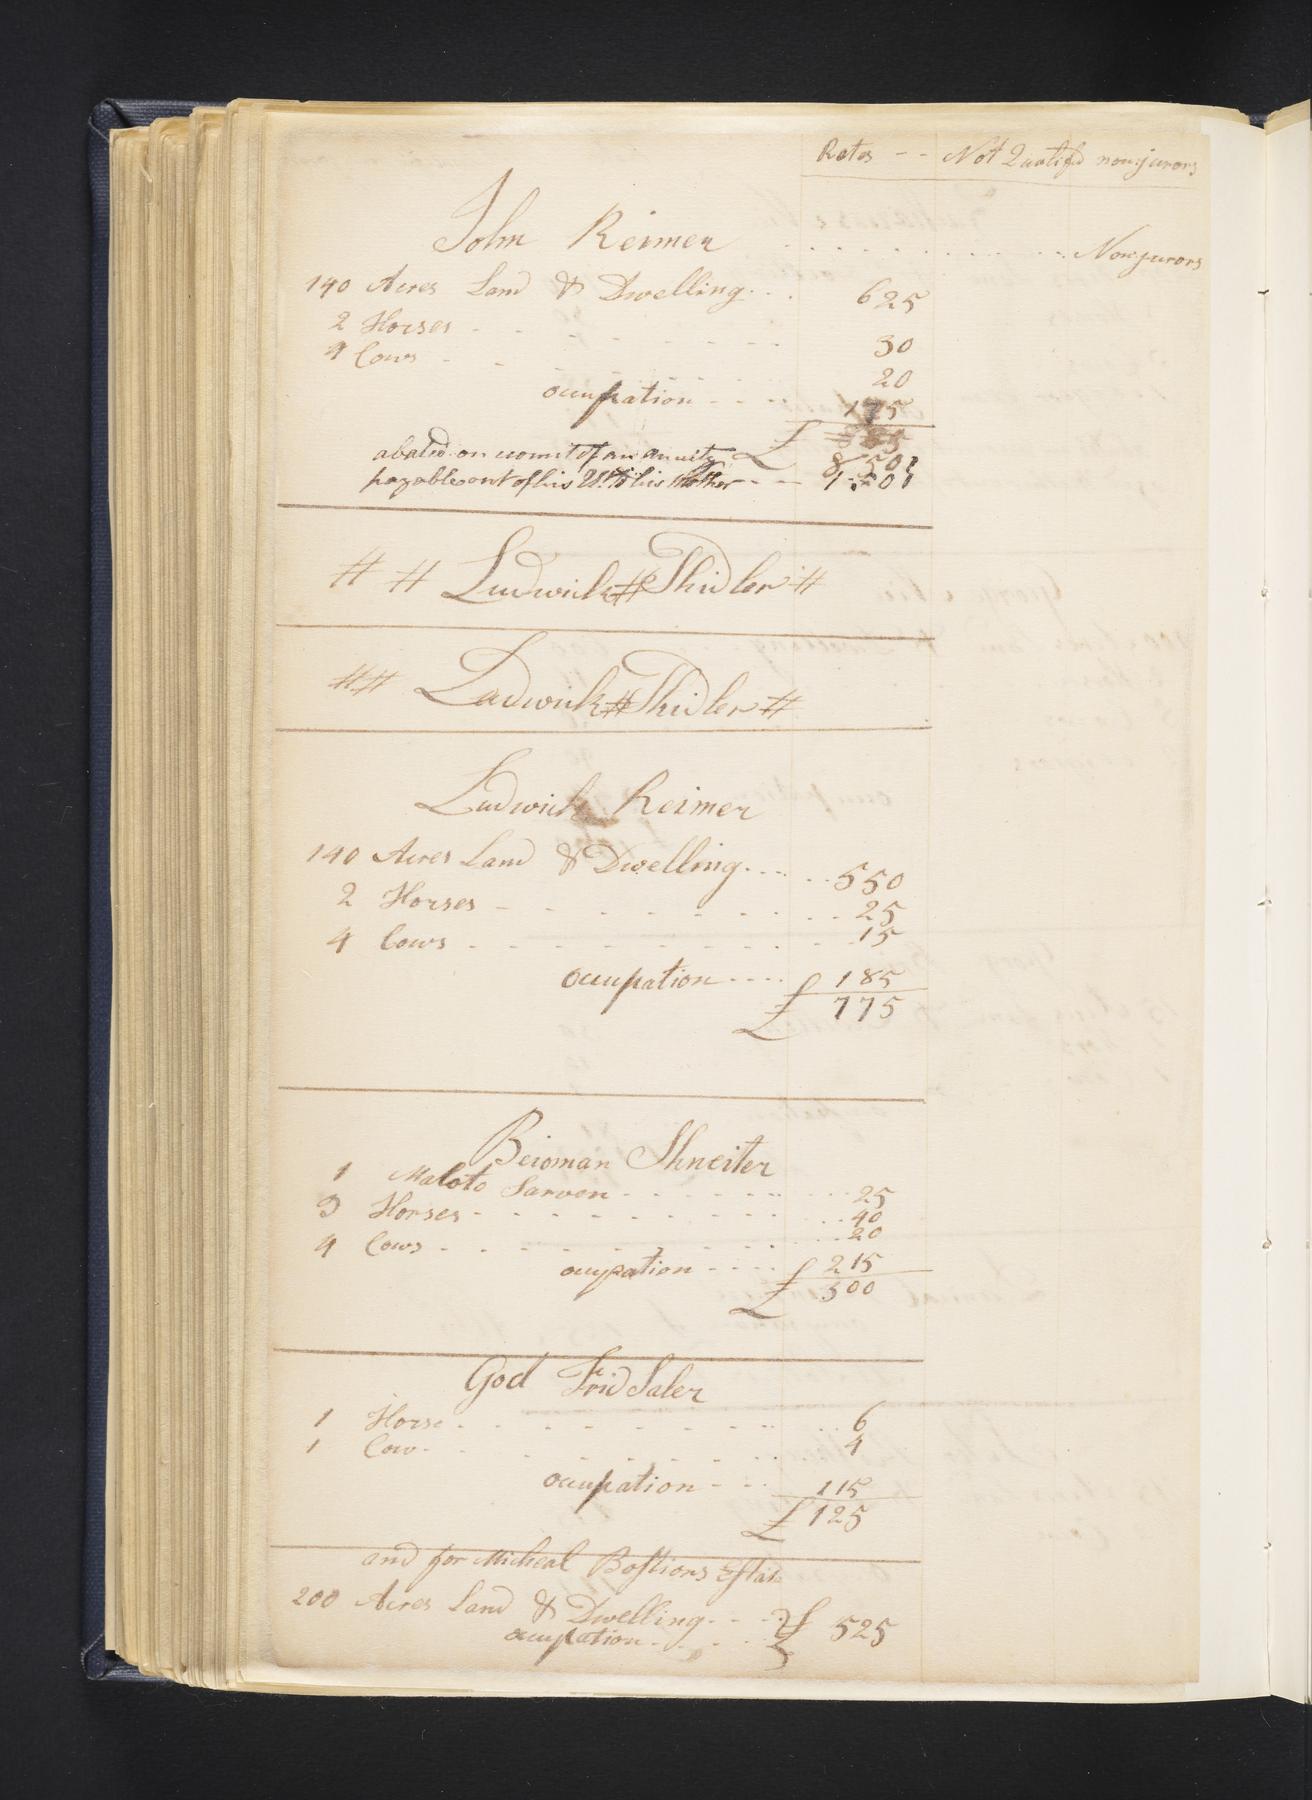 Rates -- Not Qualifd nonjurors
John Reimer ........... Nonjurors
140 Acres Land & Dwelling... 625
2 Horses - - - - - - 30
4 Cows - - - - - - 20
occupation - - - - 175
£
abated on accomt of an annuity £ 850
payable out of his Est. to his Mother - - -
# # Ludwick # Shidler #
## Ladwick # Shidler #
Ludwick Reimer
140 Acres Land & Dwelling...... 550
2 Horses - - - - - - - - - 25
4 Cows - - - - - - - - - 15
occupation ---- 185
£ 775
Beioman Shneiter
1 Maloto Sarven - - - - - - 25
3 Horses - - - - - - - - 40
4 Cows - - - - - - - - 20
occupation ---- 215
£ 300
God Frid Saler
1 Horse - - - - - - - 6
1 Cow - - - - - - - 4
occupation - - - 115
£ 125
and for Micheal Bostions Estate
200 Acres Land & Dwelling - - - £ 525
occupation - - - -